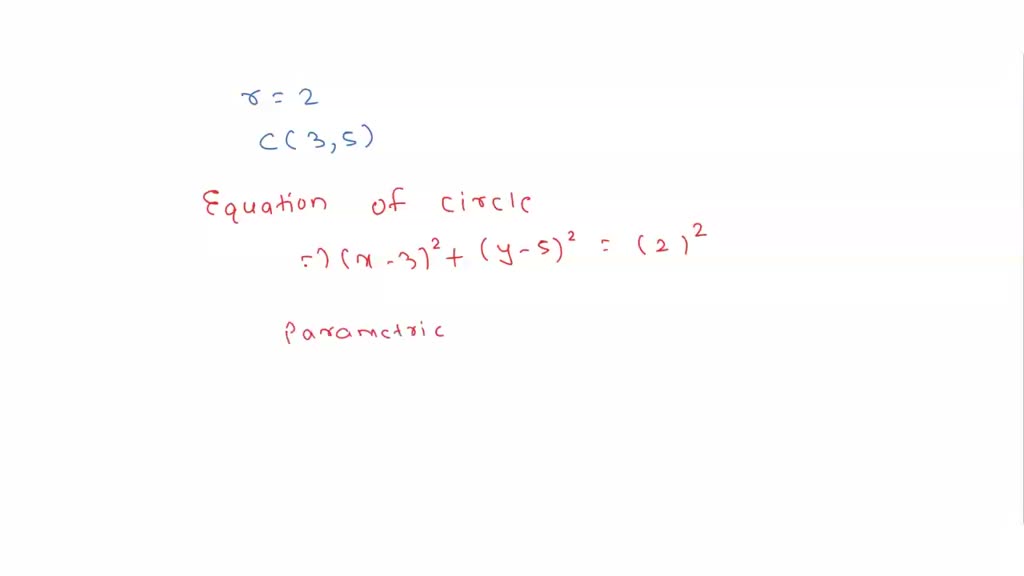 r = 2
C(3,5)
Equation of circle
⇒ (x - 3)² + (y - 5)² = (2)²
Parametric